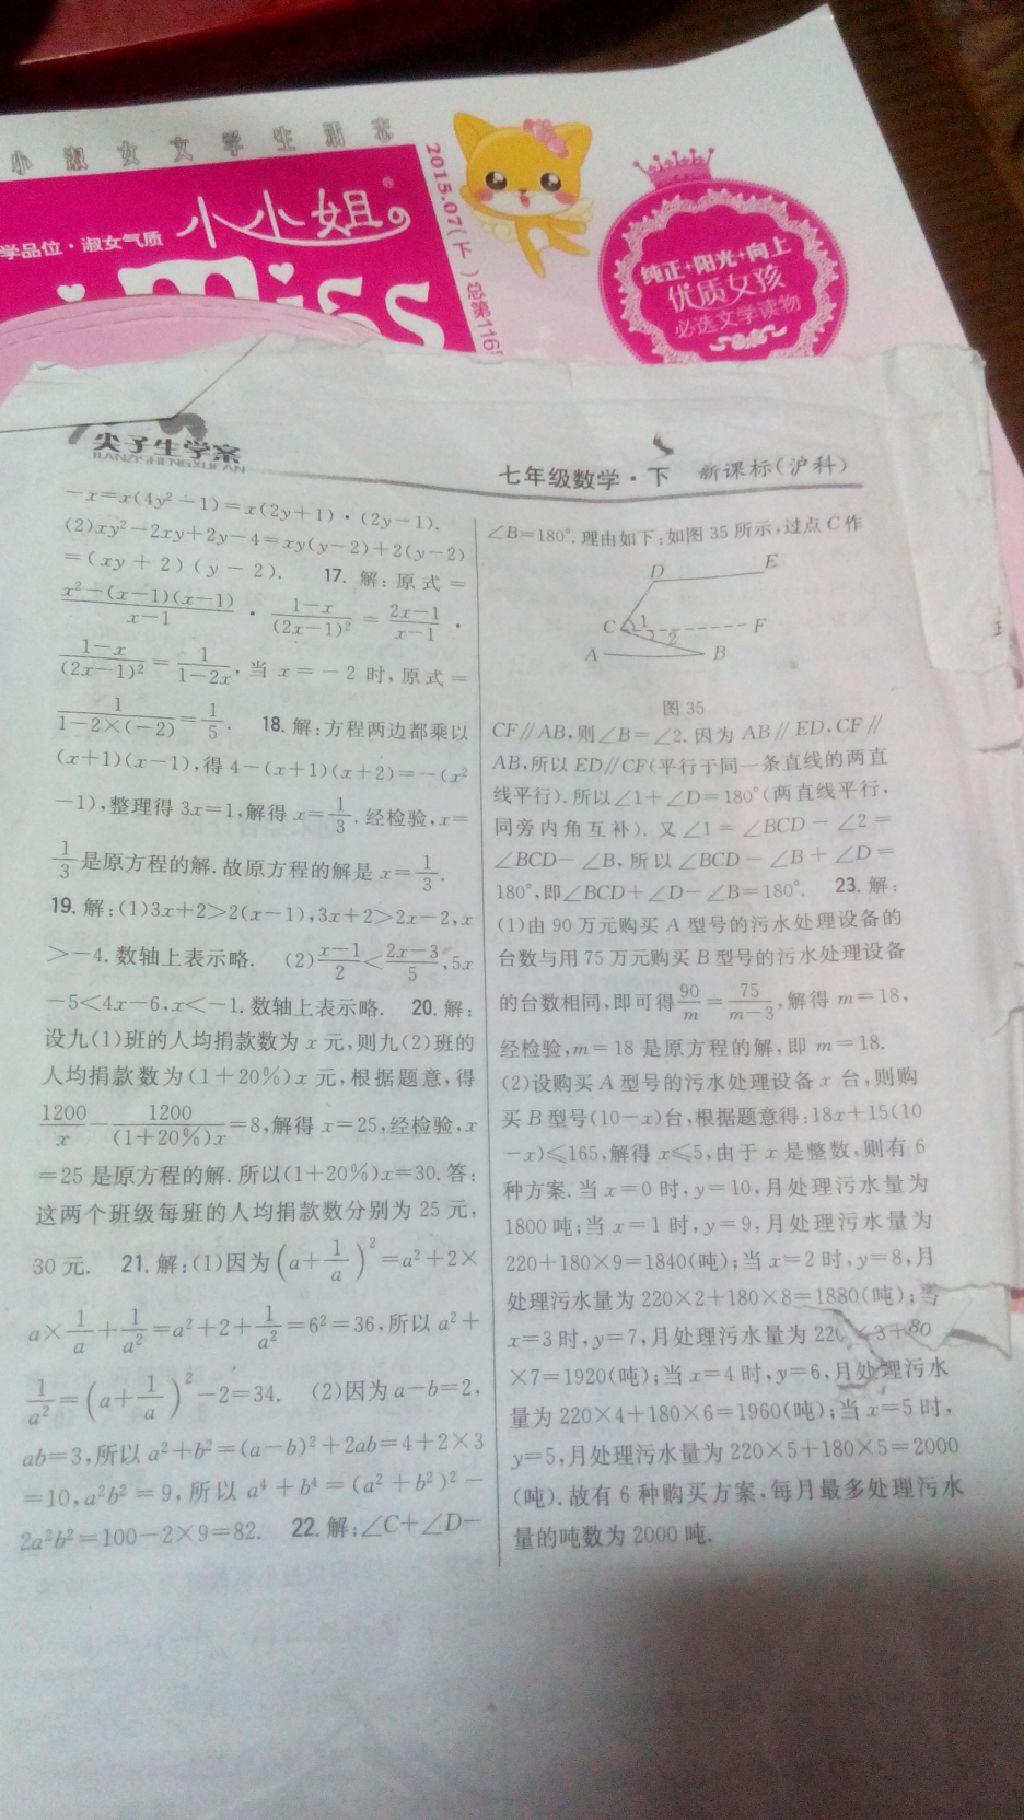 小淑女文学生活志
小小姐®
学品位·淑女气质
Miss
2015.07(下)总第116
纯正+阳光+向上
优质女孩
必选文学读物
尖子生学案
JIANZISHENGXUEAN
七年级数学·下 新课标(沪科)
-x=x(4y²-1)=x(2y+1)·(2y-1).
(2)xy²-2xy+2y-4=xy(y-2)+2(y-2)
=(xy+2)(y-2). 17. 解:原式=
\frac{x²-(x-1)(x-1)}{x-1}·\frac{1-x}{(2x-1)²}=\frac{2x-1}{x-1}·
\frac{1-x}{(2x-1)²}=\frac{1}{1-2x},当 x=-2 时,原式=
\frac{1}{1-2×(-2)}=\frac{1}{5}. 18. 解:方程两边都乘以
(x+1)(x-1),得 4-(x+1)(x+2)=-(x²
-1),整理得 3x=1,解得 x=\frac{1}{3}. 经检验,x=
\frac{1}{3}是原方程的解.故原方程的解是 x=\frac{1}{3}.
19. 解:(1)3x+2>2(x-1),3x+2>2x-2,x
>-4. 数轴上表示略. (2)\frac{x-1}{2}<\frac{2x-3}{5},5x
-5<4x-6,x<-1. 数轴上表示略. 20. 解:
设九(1)班的人均捐款数为 x 元,则九(2)班的
人均捐款数为(1+20%)x 元,根据题意,得
\frac{1200}{x}-\frac{1200}{(1+20%)x}=8,解得 x=25,经检验,x
=25 是原方程的解.所以(1+20%)x=30. 答:
这两个班级每班的人均捐款数分别为 25 元,
30 元. 21. 解:(1)因为(a+\frac{1}{a})²=a²+2×
a×\frac{1}{a}+\frac{1}{a²}=a²+2+\frac{1}{a²}=6²=36,所以 a²+
\frac{1}{a²}=(a+\frac{1}{a})²-2=34. (2)因为 a-b=2,
ab=3,所以 a²+b²=(a-b)²+2ab=4+2×3
=10,a²b²=9,所以 a⁴+b⁴=(a²+b²)²-
2a²b²=100-2×9=82. 22. 解:∠C+∠D-
∠B=180°. 理由如下:如图 35 所示,过点 C 作
D E
C 1 2 F
A B
图 35
CF∥AB,则∠B=∠2. 因为 AB∥ED,CF∥
AB,所以 ED∥CF(平行于同一条直线的两直
线平行).所以∠1+∠D=180°(两直线平行,
同旁内角互补). 又∠1=∠BCD-∠2=
∠BCD-∠B,所以∠BCD-∠B+∠D=
180°,即∠BCD+∠D-∠B=180°. 23. 解:
(1)由 90 万元购买 A 型号的污水处理设备的
台数与用 75 万元购买 B 型号的污水处理设备
的台数相同,即可得\frac{90}{m}=\frac{75}{m-3},解得 m=18,
经检验,m=18 是原方程的解,即 m=18.
(2)设购买 A 型号的污水处理设备 x 台,则购
买 B 型号(10-x)台,根据题意得:18x+15(10
-x)≤165,解得 x≤5,由于 x 是整数,则有 6
种方案. 当 x=0 时,y=10,月处理污水量为
1800 吨;当 x=1 时,y=9,月处理污水量为
220+180×9=1840(吨);当 x=2 时,y=8,月
处理污水量为 220×2+180×8=1880(吨);当
x=3 时,y=7,月处理污水量为 220×3+80
×7=1920(吨);当 x=4 时,y=6,月处理污水
量为 220×4+180×6=1960(吨);当 x=5 时,
y=5,月处理污水量为 220×5+180×5=2000
(吨). 故有 6 种购买方案,每月最多处理污水
量的吨数为 2000 吨.